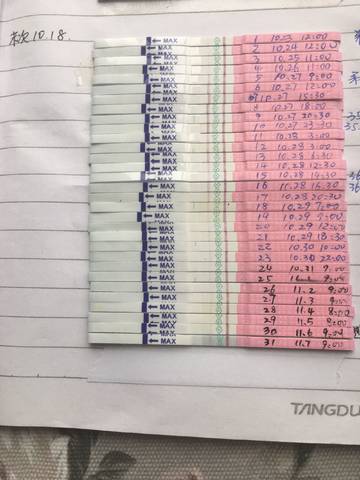 末次10.18
MAX 1 10.23 12:00
MAX 2 10.24 12:00
MAX 3 10.25 11:00
MAX 4 10.26 11:00
MAX 5 10.27 9:00
MAX 6 10.27 12:00
MAX 10.27 15:30
MAX 8 10.27 18:00
MAX 9 10.27 20:30
MAX 10 10.27 23:30
MAX 11 10.28 3:00
MAX 12 10.28 3:00
MAX 13 10.28
MAX 14 10.28 12:30
MAX 15 10.28 14:30
MAX 16 10.28 16:30
MAX 17 10.28 20:30
MAX 18 10.29 7:00
MAX 19 10.29 9:00
MAX 20 10.29 12:00
MAX 21 10.29 18:30
MAX 22 10.30 10:00
MAX 23 10.30 22:00
MAX 24 10.31 9:00
MAX 25
MAX 26 11.2 9:00
MAX 27 11.3
MAX 28 11.4 8:00
MAX 29 11.5 8:00
MAX 30 11.6 9:00
MAX 31 11.7 9:00
TANGDU